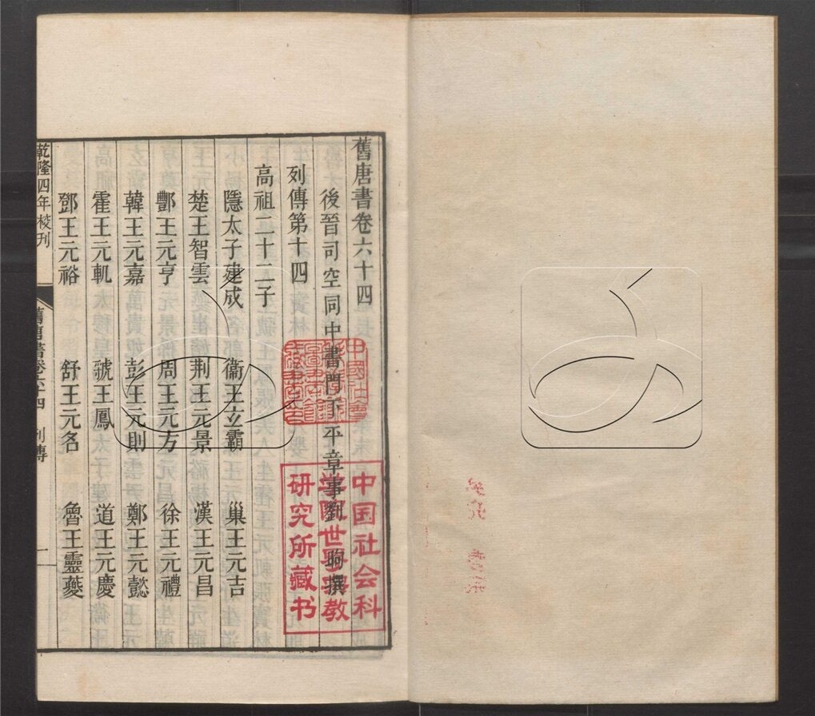 舊唐書卷六十四
後晉司空同中書門下平章事劉昫撰
列傳第十四
高祖二十二子
隱太子建成 衞王玄霸 巢王元吉
楚王智雲 荆王元景 漢王元昌
酆王元亨 周王元方 徐王元禮
韓王元嘉 彭王元則 鄭王元懿
霍王元軌 虢王鳳 道王元慶
鄧王元裕 舒王元名 魯王靈夔
乾隆四年校刊
舊唐書卷六十四 列傳 一
中国社会科
学院世界宗教
研究所藏书